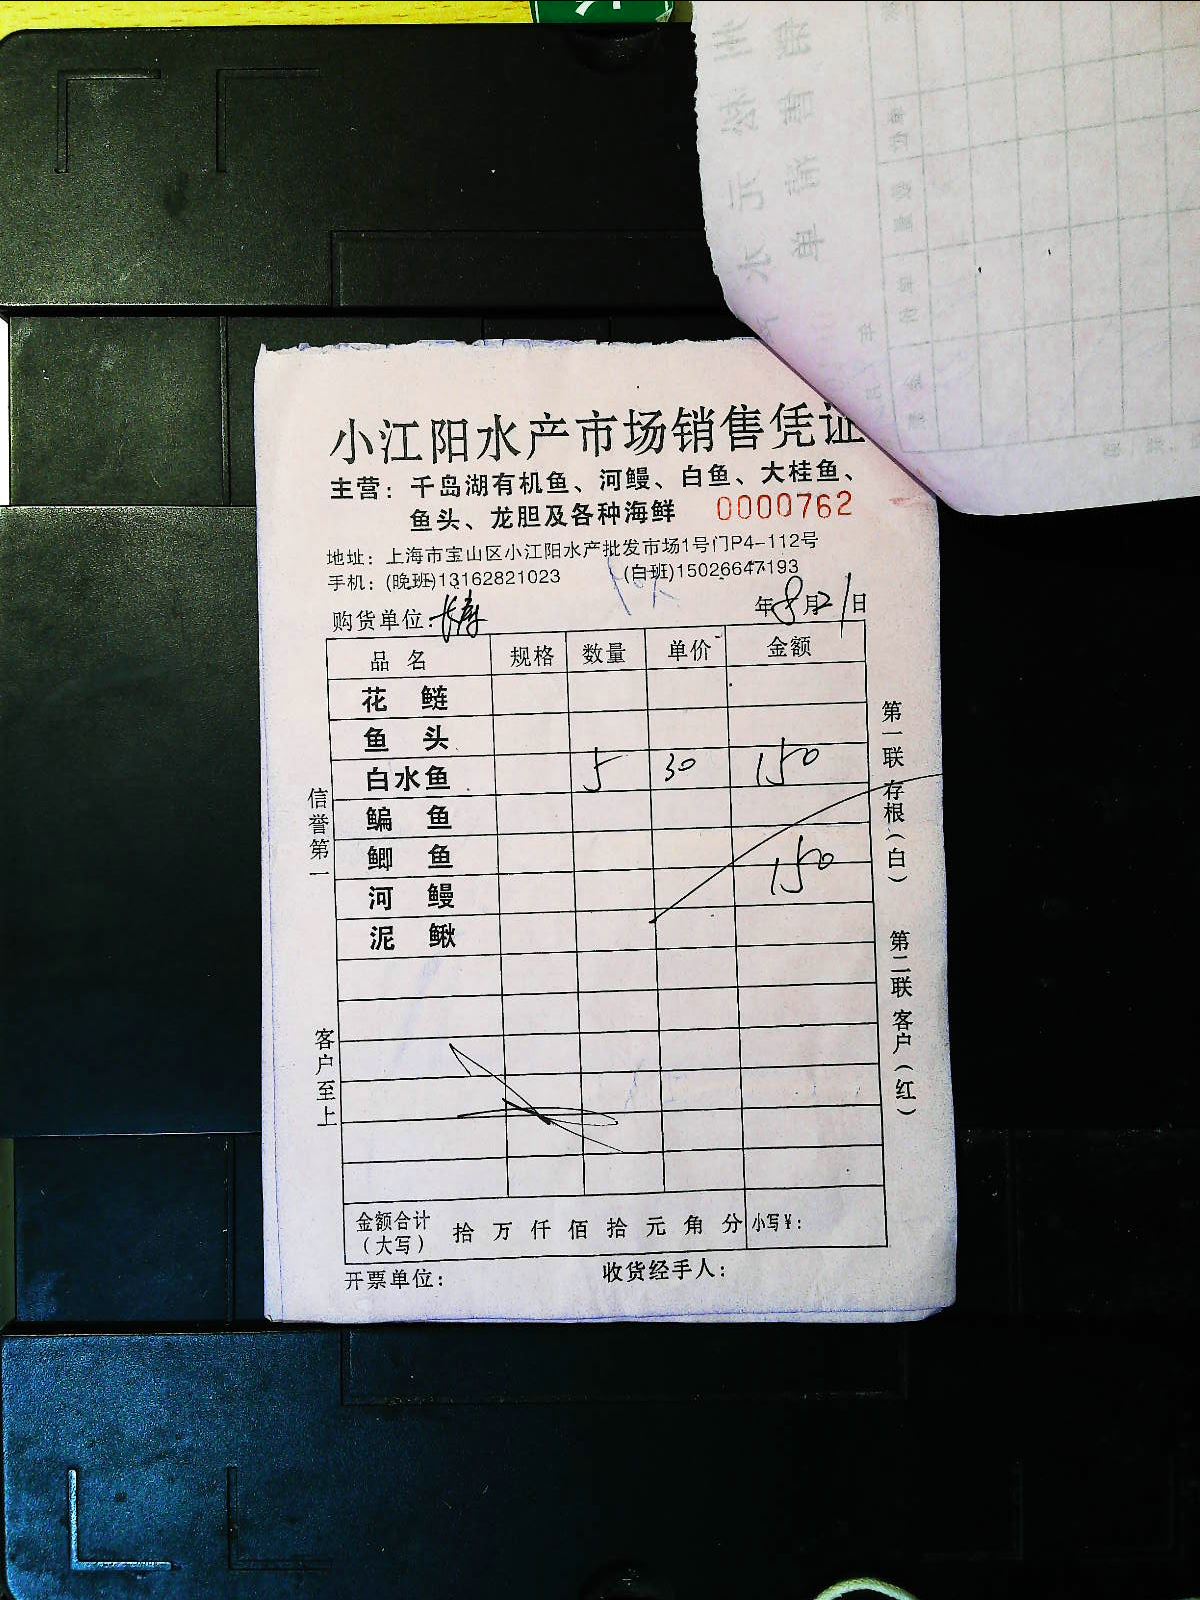 小江阳水产市场销售凭证
主营：千岛湖有机鱼、河鳗、白鱼、大桂鱼、
鱼头、龙胆及各种海鲜 0000762
地址：上海市宝山区小江阳水产批发市场1号门P4-112号
手机：(晚班)13162821023 (白班)15026647193
购货单位: 长寿 年8月21日
品名 规格 数量 单价 金额
花鲢
鱼头
白水鱼 5 30 150
鳊鱼
鲫鱼 150
河鳗
泥鳅
金额合计（大写） 拾 万 仟 佰 拾 元 角 分 小写¥:
开票单位： 收货经手人：
信誉第一
客户至上
第一联 存根（白）
第二联 客户（红）